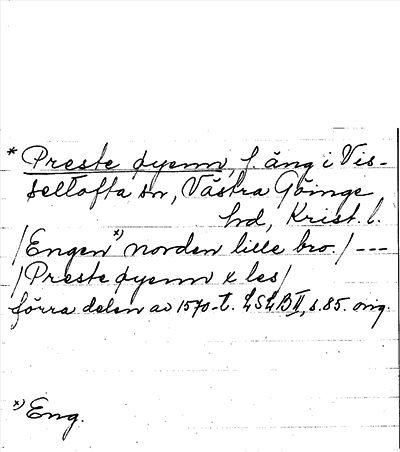 * Preste øyenn, f. äng i Vis-
seltofta sn, Västra Göinge
hd, Krist. l.
/Engen x) norden lille bro./ ---
/Preste øyenn x les/
förra delen av 1570-t. LSLB II, s. 85. orig.
x) Eng.